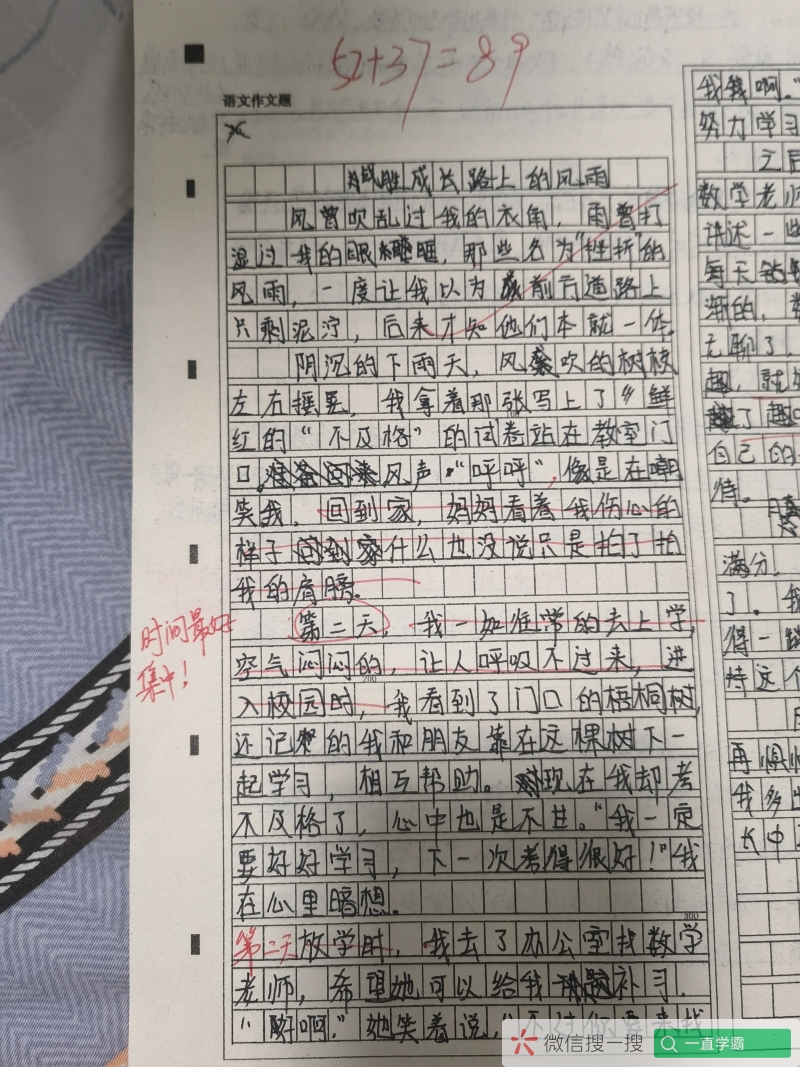 52+37=89
语文作文题
战胜成长路上的风雨
风曾吹乱过我的衣角，雨曾打
湿过我的眼睡眶，那些名为“挫折”的
风雨，一度让我以为前方道路上
只剩泥泞，后来才知他们本就一体。
阴沉的下雨天，风吹的树枝
左右摇晃，我拿着那张写上了鲜
红的“不及格”的试卷站在教室门
口，风声“呼呼”，像是在嘲
笑我，回到家，妈妈看着我伤心的
样子什么也没说只是拍了拍
我的肩膀。
时间最好
集中！
第二天，我一如往常的去上学，
空气闷闷的，让人呼吸不过来，进
入校园时，我看到了门口的梧桐树，
200
还记的我和朋友靠在这棵树下一
起学习，相互帮助。现在我却考
不及格了，心中也是不甘。“我一定
要好好学习，下一次考得很好！”我
在心里暗想。
300
第二天放学时，我去了办公室找数学
老师，希望她可以给我补习.
“好啊。”她笑着说，“不过你要来找
我啊。”
努力学习
之后
数学老师
讲述一些
每天
渐的，数
无聊了，
趣，就
了趣
自己的
待。
满分.
了。我
得一
持这个
再惧怕
我多
长中
微信搜一搜
一直学霸